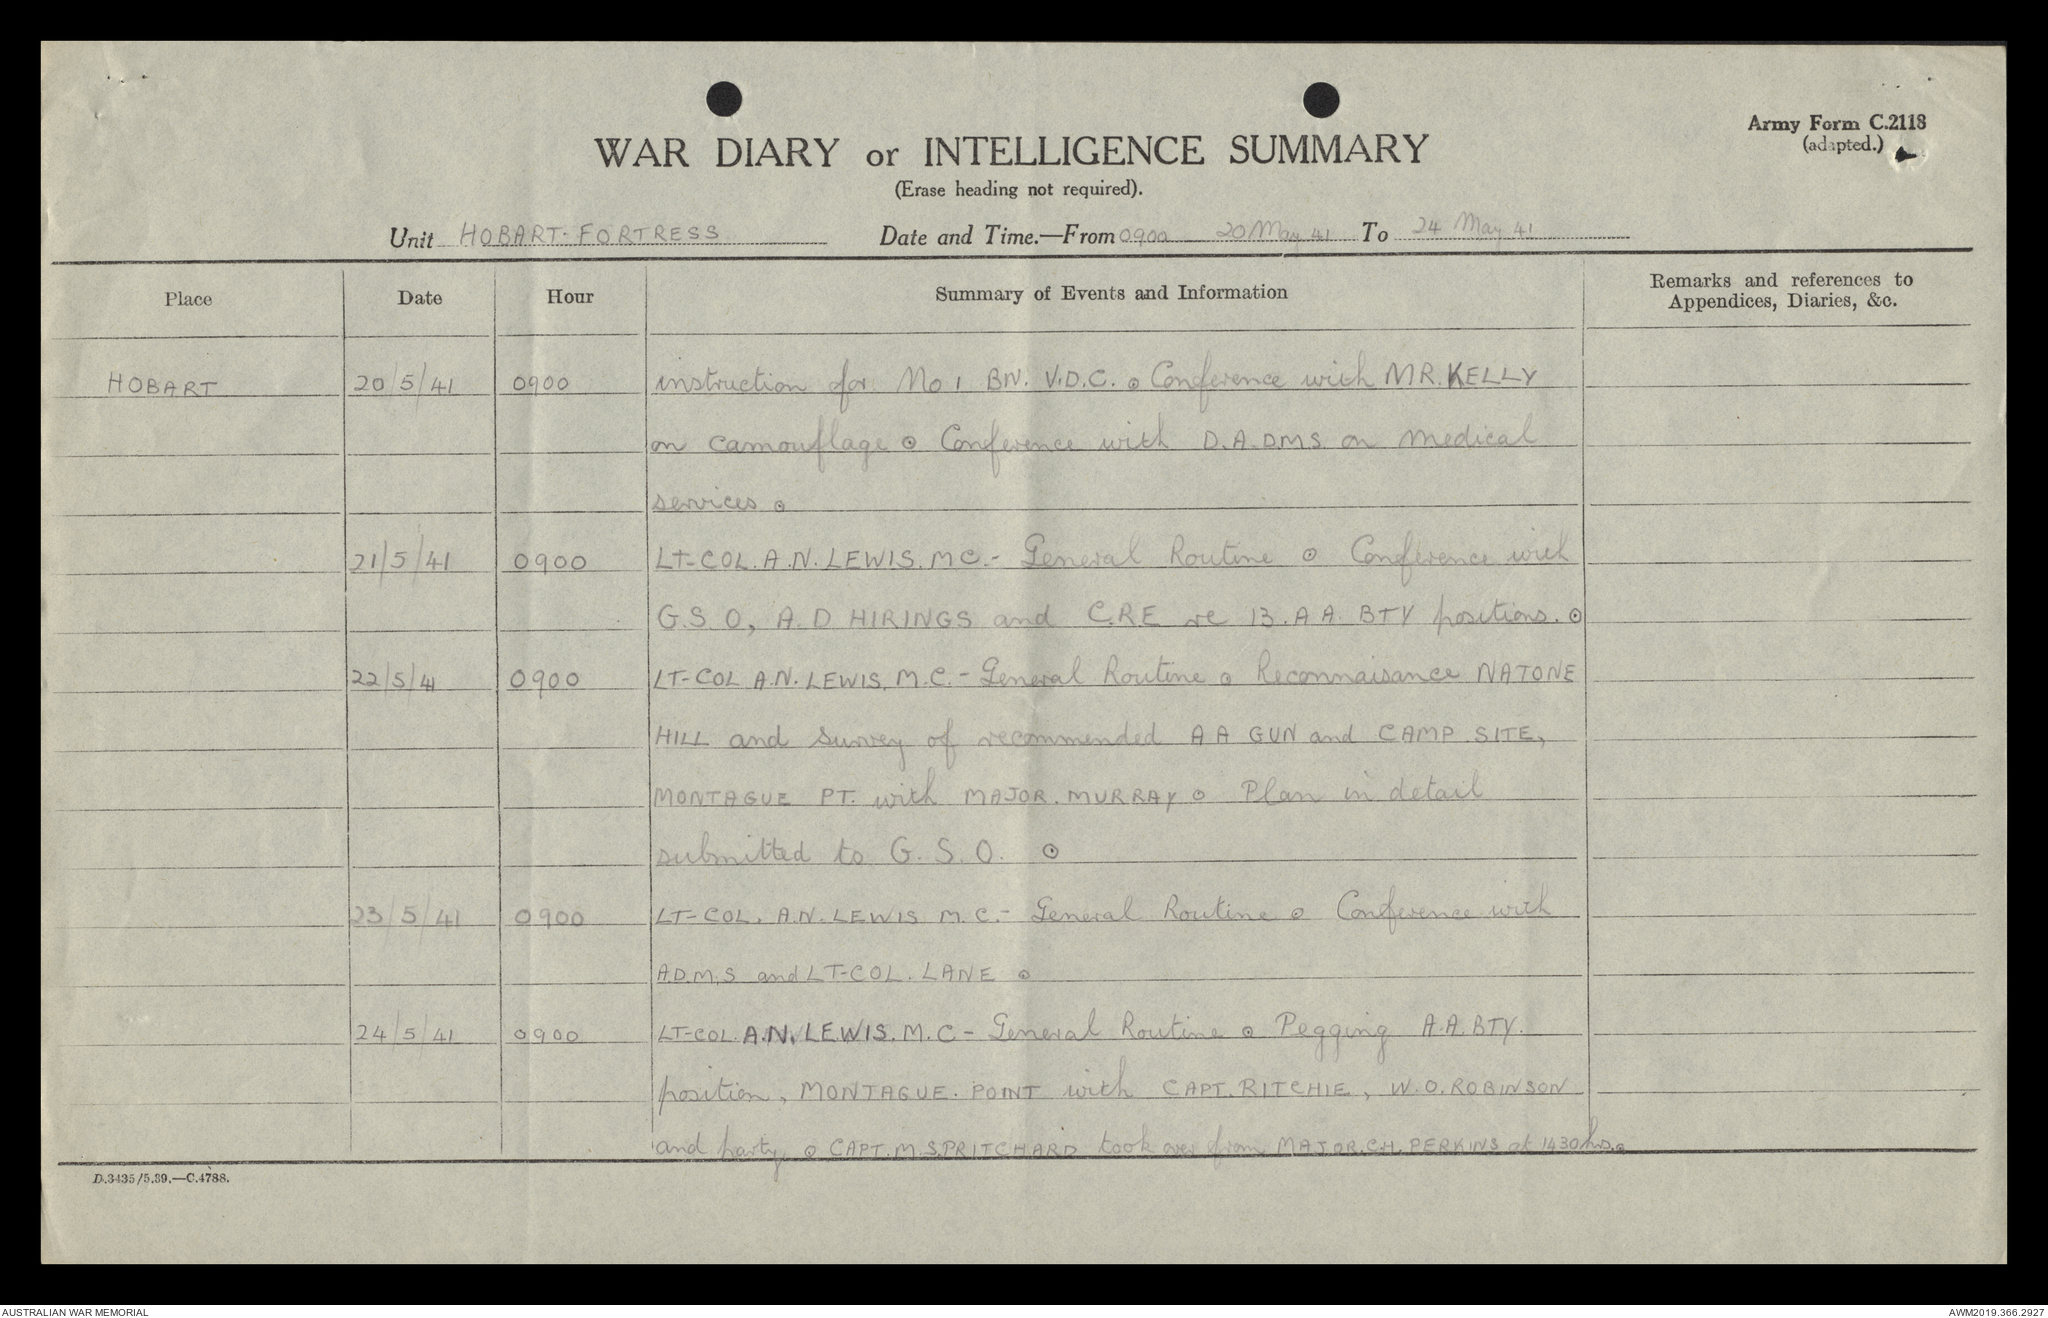 Army Form C.2118
(adapted.)
WAR DIARY or INTELLIGENCE SUMMARY
(Erase heading not required).
Unit HOBART. FORTRESS Date and Time.—From 0900 20 May 41 To 24 May 41
Place Date Hour Summary of Events and Information Remarks and references to
Appendices, Diaries, &c.
HOBART 20/5/41 0900 instruction for No 1 BN. V.D.C. ⊙ Conference with MR. KELLY
on camouflage ⊙ Conference with D.A.DMS on medical
services ⊙
21/5/41 0900 LT-COL. A.N. LEWIS. MC.- General Routine ⊙ Conference with
G.S.O, A.D HIRINGS and C.R.E re 13.A A. BTY positions. ⊙
22/5/41 0900 LT-COL A.N. LEWIS. M.C.- General Routine ⊙ Reconnaisance NATONE
HILL and survey of recommended A A GUN and CAMP SITE,
MONTAGUE PT. with MAJOR. MURRAY ⊙ Plan in detail
submitted to G. S. O. ⊙
23/5/41 0900 LT-COL. A.N. LEWIS M.C.- General Routine ⊙ Conference with
A.D.M.S and LT-COL. LANE ⊙
24/5/41 0900 LT-COL. A.N. LEWIS. M.C - General Routine ⊙ Pegging A.A. BTY.
position, MONTAGUE. POINT with CAPT. RITCHIE, W.O. ROBINSON
and party. ⊙ CAPT. M.S.PRITCHARD took over from MAJOR.C.H. PERKINS at 1430hrs.⊙
D.3435/5.39.—C.4788.
AUSTRALIAN WAR MEMORIAL AWM2019.366.2927